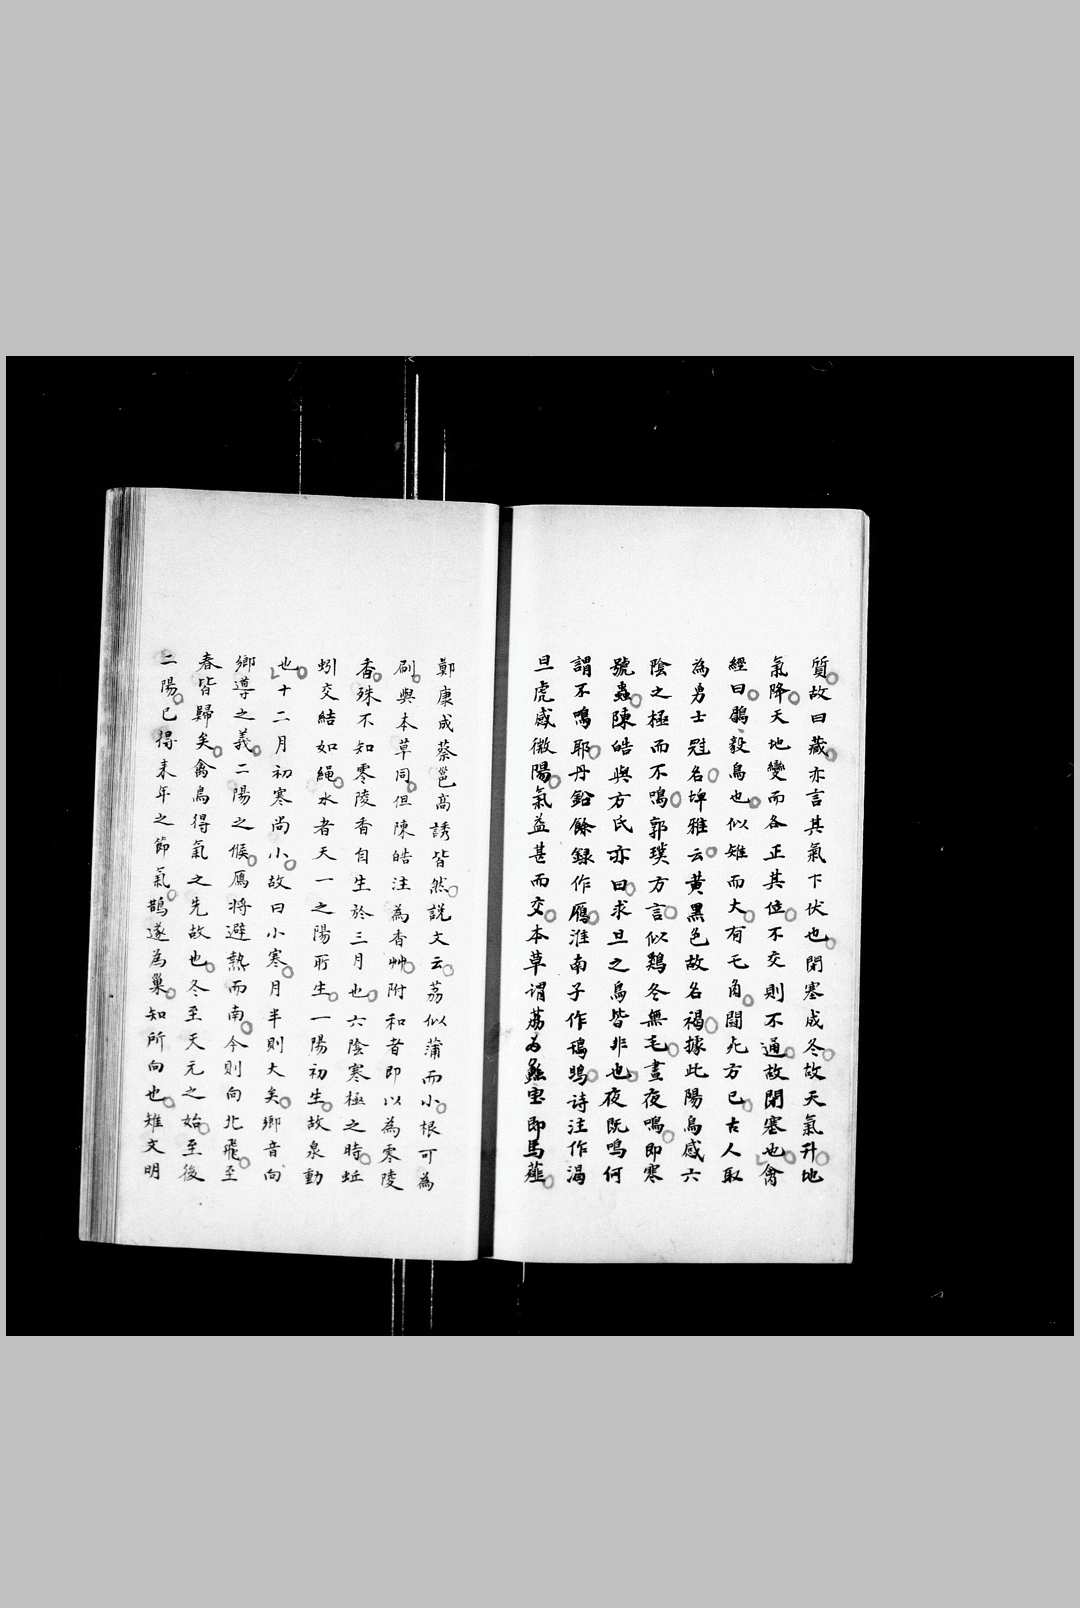 質故曰藏亦言其氣下伏也閉塞成冬故天氣升地
氣降天地變而各正其位不交則不通故閉塞也禽
經曰鶡毅鳥也似雉而大有毛角鬪死方已古人取
為勇士冠名埤雅云黃黑色故名褐據此陽鳥感六
陰之極而不鳴郭璞方言似鷄冬無毛晝夜鳴即寒
號蟲陳皓與方氏亦曰求旦之鳥皆非也夜既鳴何
謂不鳴耶丹鉛餘録作鴈淮南子作鳱鴠诗注作渴
旦虎感微陽氣益甚而交本草谓荔为蠡宲即馬薤
鄭康成蔡邕高誘皆然説文云荔似蒲而小根可為
刷與本草同但陳皓注為香艸附和者即以為零陵
香殊不知零陵香自生於三月也六陰寒極之時蚯
蚓交結如繩水者天一之陽所生一陽初生故泉動
也十二月初寒尚小故曰小寒月半則大矣鄉音向
鄉導之義二陽之候鴈將避熱而南今則向北飛至
春皆歸矣禽鳥得氣之先故也冬至天元之始至後
二陽已得来年之節氣鵲遂為巢知所向也雉文明